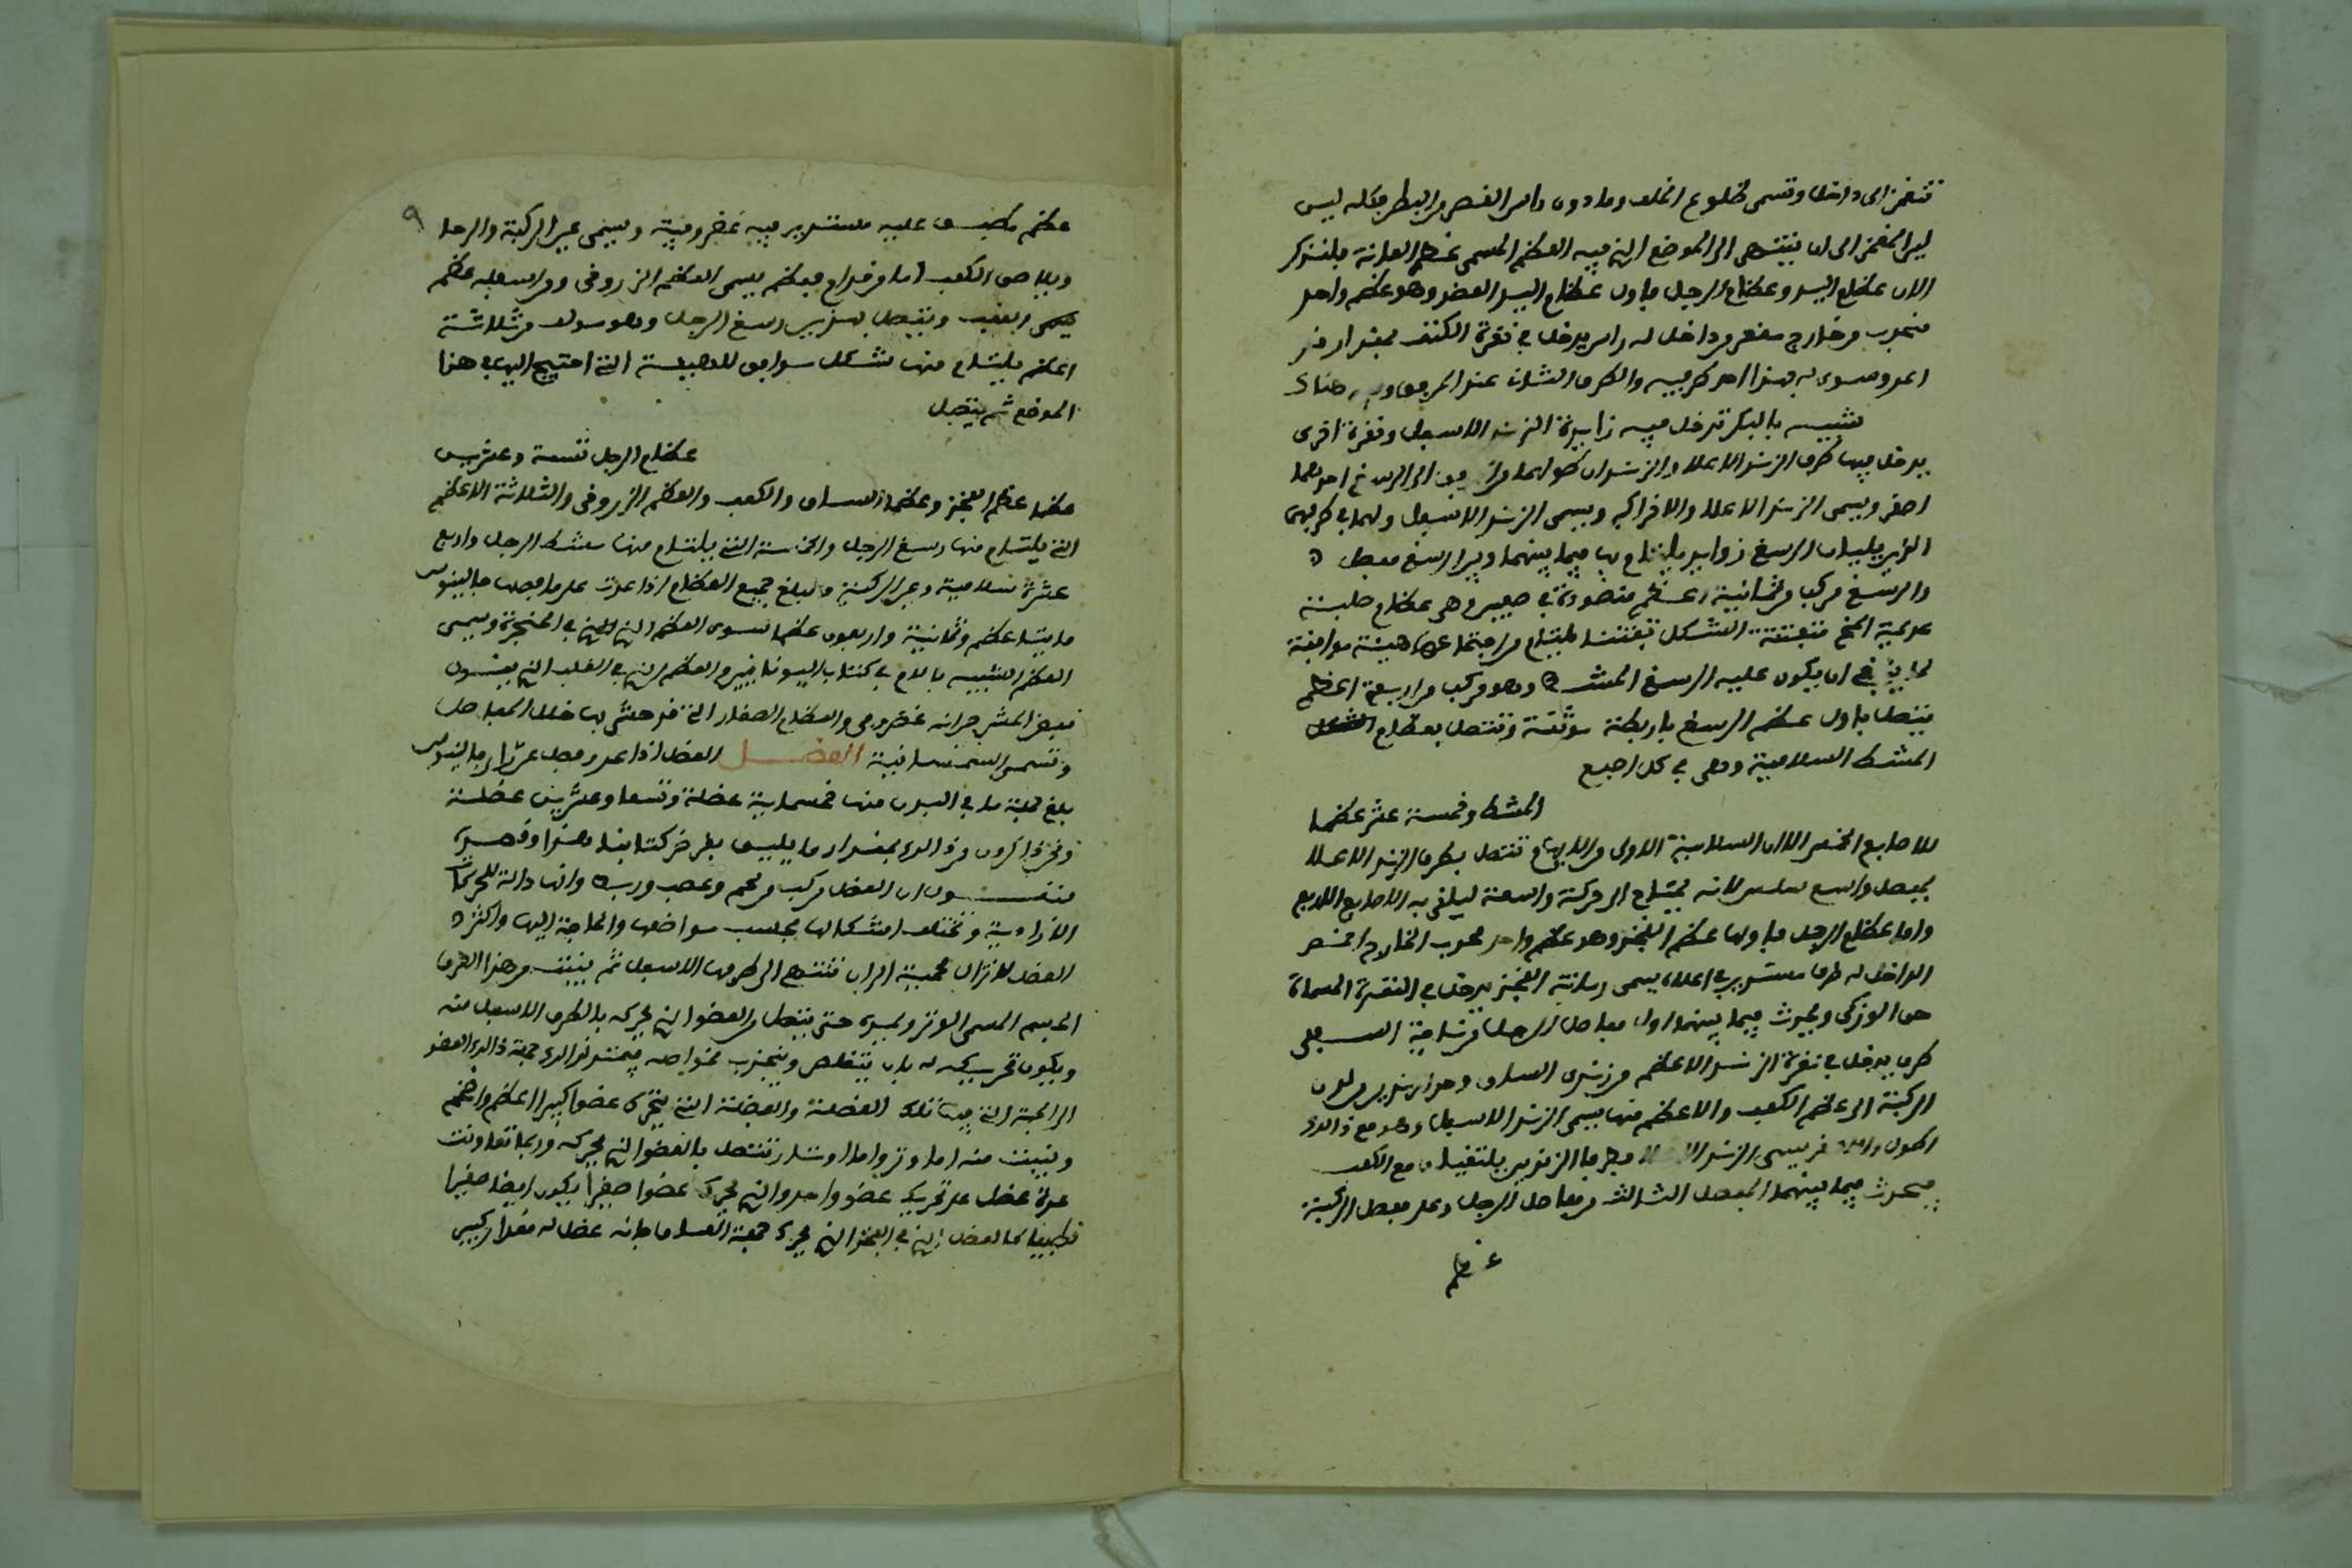 تنغمز الى داخل وتسمى ضلوع الخلف وما دون راس القص من البطن فكله ليس
الى ان ينتهى الى الموضع الذي فيه العظم المسمى عظم العانة فلنذكر
الان عظام اليد وعظام الرجل فاول عظام اليد العضد وهو عظم واحد
محدب من خارج مقعر من داخل له راس يدخل في نقرة الكتف بمقدار
احد طرفيه والطرف الثان عند المرفق هناك
شبيه بالبكر تدخل فيه زايدة الزند الاسفل ونقرة اخرى
يدخل فيها طرف الزند الاعلا والزندان طولهما من الى الرسغ احدهما
اصغر ويسمى الزند الاعلا والاخر اكبر ويسمى الزند الاسفل ولهما في طرفيهما
الذين يليان الرسغ زوايد يلتئم بها فيما بينهما وبين الرسغ مفصل
والرسغ مركب من ثمانية اعظم منضودة في صفين وهي عظام صلبة
عديمة المخ الشكل يلتئم من اجتماعها هيئة موافقة
لما ينبغي ان يكون عليه الرسغ المشط وهو مركب من اربعة اعظم
يتصل باول عظم الرسغ باربطة موثقة وتتصل بعظام
المشط السلامية وهي في كل اصبع
المشط وخمسة عشر عظما
للاصابع الخمس الا ان السلامية الاولى من الابهام تتصل بطرف الزند الاعلا
بمفصل واسع سلس لانه يحتاج الى حركة واسعة ليلقى به الاصابع الاربع
واما عظام الرجل فاولها عظم الفخذ وهو عظم واحد محدب الخارج
الداخل له طرف مستدير في اعلاه يسمى رمانة الفخذ يدخل في النقرة المسماة
حق الورك ويحدث فيما بينهما اول مفاصل الرجل
طرف يدخل في نقرة الزند الاعظم من زندي الساق وهو من لدن
الركبة الى عظم الكعب والاعظم منها يسمى الزند الاسفل وهو مع ذالك
اطول يسمى الزند وطرفا الزندين يلتقيان مع الكعب
فيحدث فيما بينهما المفصل الثالث من مفاصل الرجل وعلى مفصل الركبة
عظم
٩
عظم مطبق عليه مستدير فيه غضروفية ويسمى عين الركبة والرجل
ويلاصق الكعب اما من قدام فعظم يسمى العظم الزروفى ومن اسفله عظم
يسمى العقب ويتصل بهذين رسغ الرجل وهو مولف من ثلاثة
اعظم يلتئم منها شكل موافق للهيئة التي احتيج اليها في هذا
الموضع ثم يتصل
عظام الرجل تسعة وعشرين
عظما عظم الفخذ وعظما الساق والكعب والعظم الزروفى والثلاثة الاعظم
التي يلتئم منها رسغ الرجل والخمسة التي يلتئم منها مشط الرجل واربع
عشرة سلامية وعين الركبة ومبلغ جميع العظام اذا عدت على ما فصلها جالينوس
مايتا عظم وثمانية واربعون عظما سوى العظم الذي في الحنجرة ويسمى
العظم الشبيه باللام في كتاب اليونانيين والعظم الذي في القلب الذي يقول
بعض المشرحين انه غضروفى والعظام الصغار التي قد حشي بها خلل المفاصل
وتسمى السمسمانية العضل العضل اذا عد وفصل على راي جالينوس
بلغ جملة ما في البدن منها خمسماية عضلة وتسعا وعشرين عضلة
ونحن ذاكرون من ذالك بمقدار ما يليق بغرض كتابنا هذا وقصده
فنقول ان العضل مركب من لحم وعصب ورباط وانها دالة للحركات
الارادية وتختلف اشكالها بحسب مواضعها والحاجة اليها واكثر
العضل لا تزال لحمية الى ان تنتهي الى طرفها الاسفل ثم ينبت من هذا الطرف
الجسم المسمى الوتر ويمتد حتى يتصل بالعضو الذي يحركه بالطرف الاسفل منه
ويكون تحريكه له بان يتقلص وينجذب نحو اصله فيمتد لذالك جهة ذالك العضو
الى الجهة التي فيها تلك العضلة والعضلة التي تحرك عضوا كبيرا اعظم واضخم
وينبت منه اما وتر واما اوتار تتصل بالعضو الذي يحركه وربما تعاونت
عدة عضل على تحريك عضو واحد والتي تحرك عضوا صغيرا يكون ايضا صغيرا
كالعضل الذي في الفخذ الذي يحرك جهة الساق فانه عضل له مقدار كبير